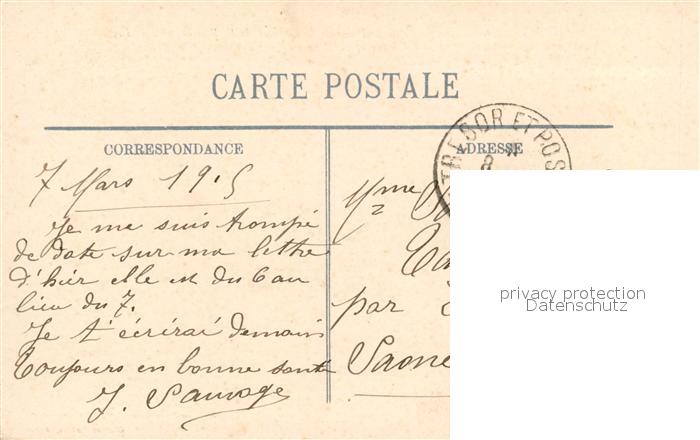 CARTE POSTALE
TRESOR ET POS
8
CORRESPONDANCE
ADRESSE
7 Mars 1915
Je me suis trompé
de date sur ma lettre
d'hier elle est du 6 au
lieu du 7.
Je t'écrirai demain
Toujours en bonne santé
J. Sauvage
Mme
par
Saone
privacy protection
Datenschutz